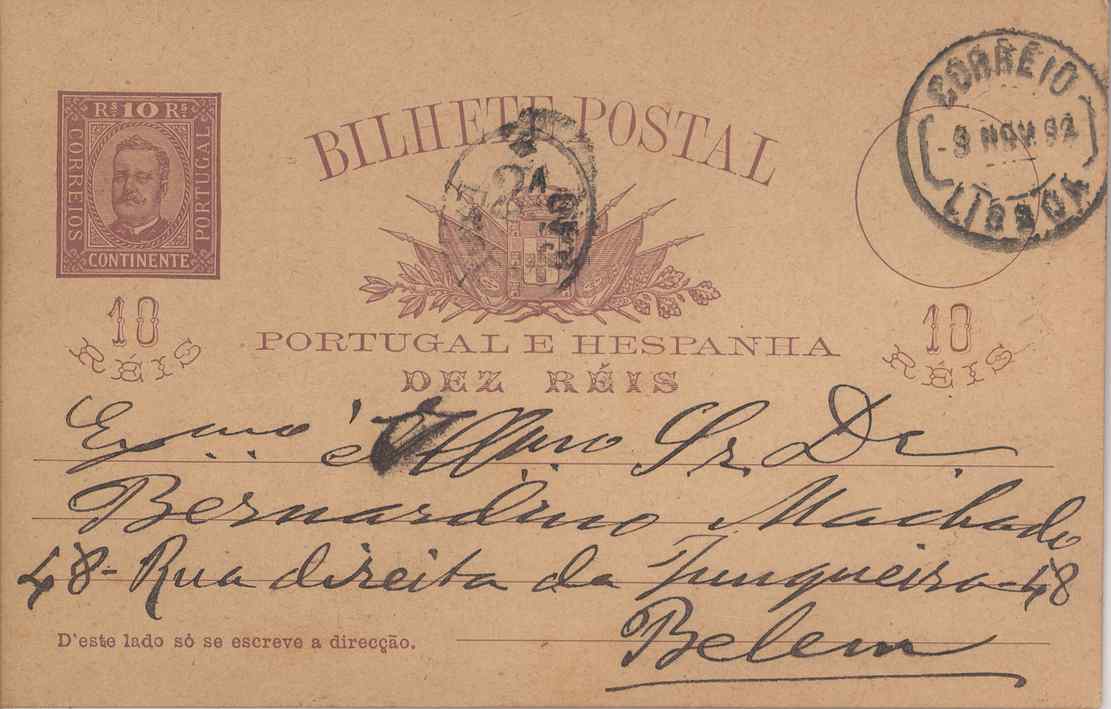 Rs 10 Rs
CORREIOS
PORTUGAL
CONTINENTE
BILHETE POSTAL
CORREIO
9 NOV. 92
LISBOA
2A
10
RÉIS
10
RÉIS
PORTUGAL E HESPANHA
DEZ RÉIS
Exmo e Illmo Sr. Dr.
Bernardino Machado
48- Rua direita da Junqueira-48
D'este lado só se escreve a direcção.
Belem